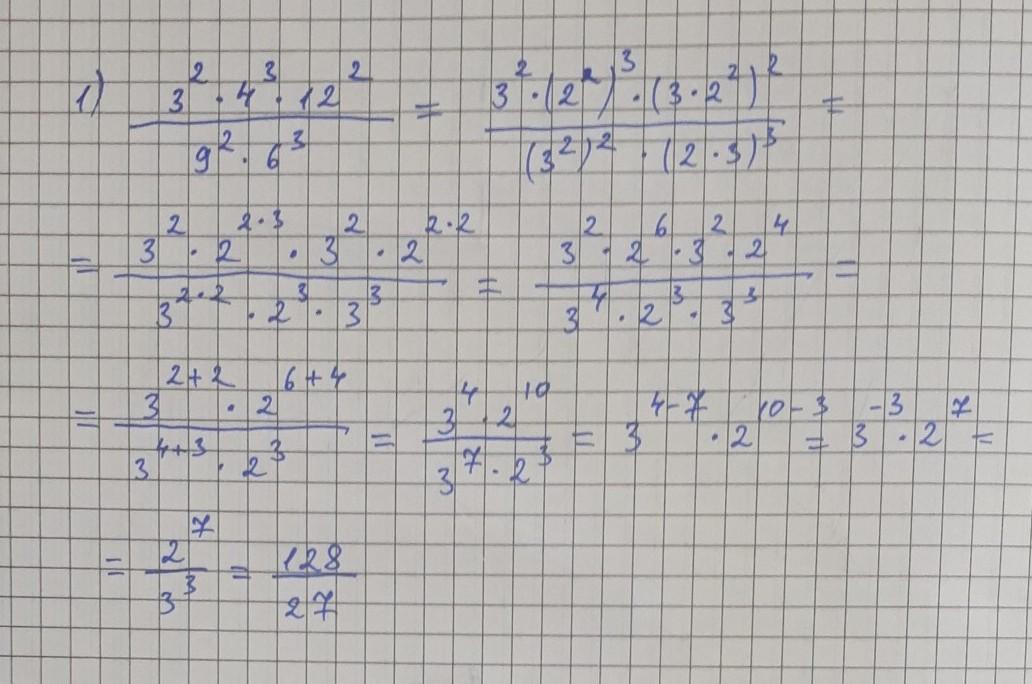 1) \frac{3^2 · 4^3 · 12^2}{9^2 · 6^3} = \frac{3^2 · (2^2)^3 · (3 · 2^2)^2}{(3^2)^2 · (2 · 3)^3} =
= \frac{3^2 · 2^{2·3} · 3^2 · 2^{2·2}}{3^{2·2} · 2^3 · 3^3} = \frac{3^2 · 2^6 · 3^2 · 2^4}{3^4 · 2^3 · 3^3} =
= \frac{3^{2+2} · 2^{6+4}}{3^{4+3} · 2^3} = \frac{3^4 · 2^{10}}{3^7 · 2^3} = 3^{4-7} · 2^{10-3} = 3^{-3} · 2^7 =
= \frac{2^7}{3^3} = \frac{128}{27}